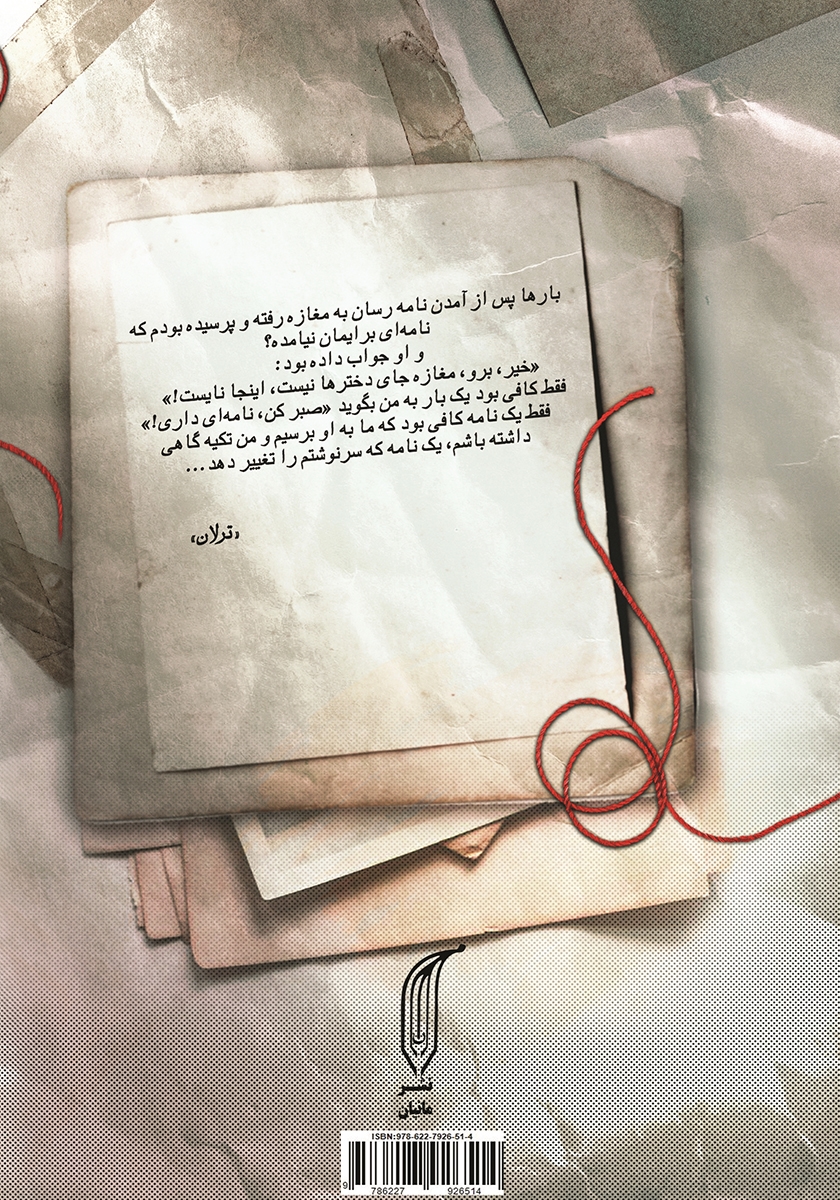 بارها پس از آمدن نامه رسان به مغازه رفته و پرسیده بودم که
نامه‌ای برایمان نیامده؟
و او جواب داده بود:
«خیر، برو، مغازه جای دخترها نیست، اینجا نایست!»
فقط کافی بود یک بار به من بگوید «صبر کن، نامه‌ای داری!»
فقط یک نامه کافی بود که ما به او برسیم و من تکیه گاهی
داشته باشم، یک نامه که سرنوشتم را تغییر دهد...
«ترلان»
نشر
مانیان
ISBN:978-622-7926-51-4
9 786227 926514